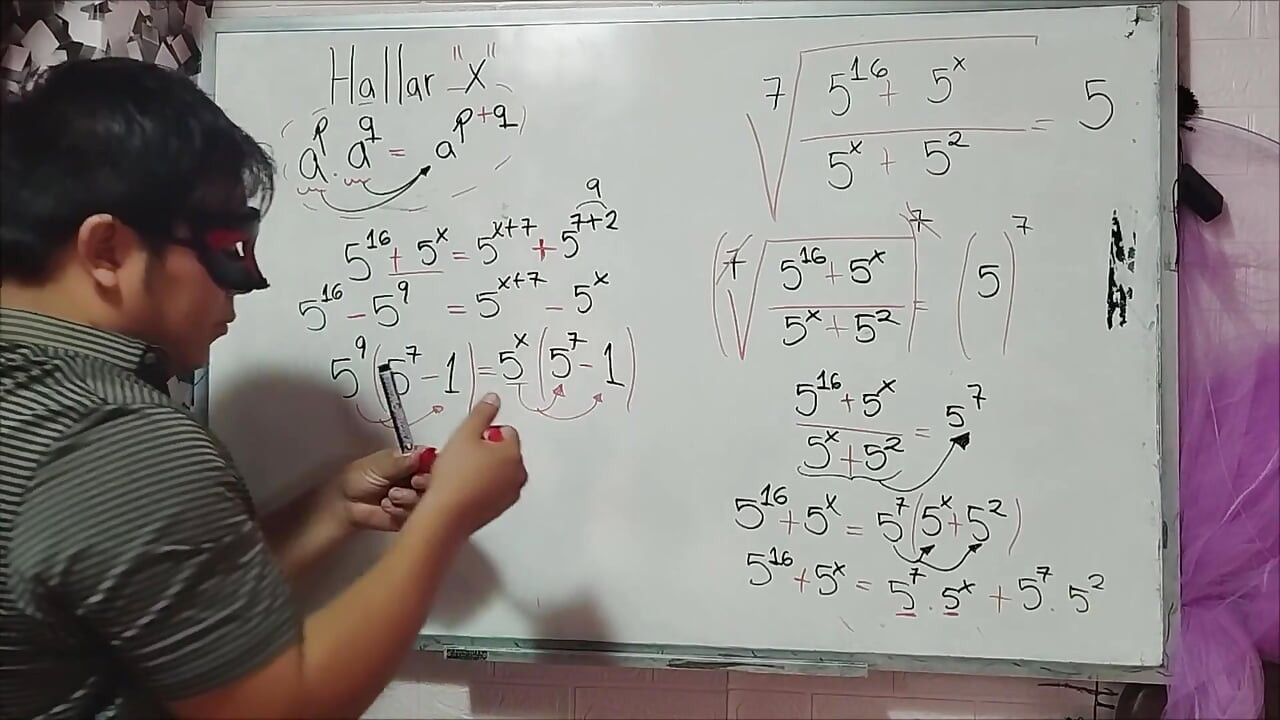 Hallar "x"
a^p . a^q = a^(p+q)
5^16 + 5^x = 5^(x+7) + 5^(7+2)
9
5^16 - 5^9 = 5^(x+7) - 5^x
5^9 (5^7 - 1) = 5^x (5^7 - 1)
7√((5^16 + 5^x)/(5^x + 5^2)) = 5
(7√((5^16 + 5^x)/(5^x + 5^2)))^7 = (5)^7
(5^16 + 5^x)/(5^x + 5^2) = 5^7
5^16 + 5^x = 5^7 (5^x + 5^2)
5^16 + 5^x = 5^7 . 5^x + 5^7 . 5^2